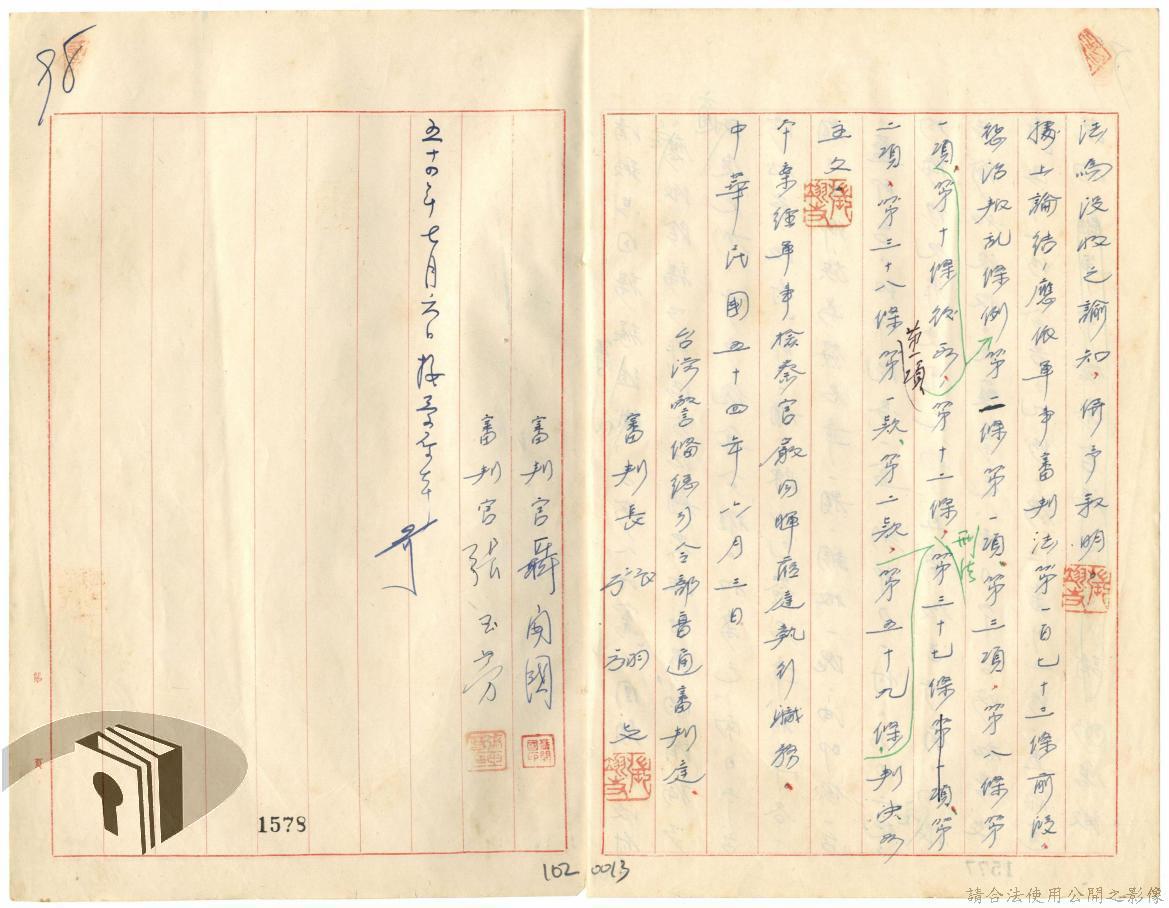 法為沒收之諭知，併予敘明。
據上論結，應依軍事審判法第一百七十三條前段，
懲治叛乱條例第二條第一項、第三項，第八條第
一項，第十條後段，第十二條，刑法第三十七條第一項、第
二項，第三十八條第一項第一款、第二款，第五十九條，判決如
主文。
本案經軍事檢察官嚴同暉蒞庭執行職務。
中華民國五十四年六月三日
台灣警備總司令部普通審判庭
審判長
審判官聶開國
審判官張玉芳
五十四年七月六日
98
1578
102 0013
請合法使用公開之影像